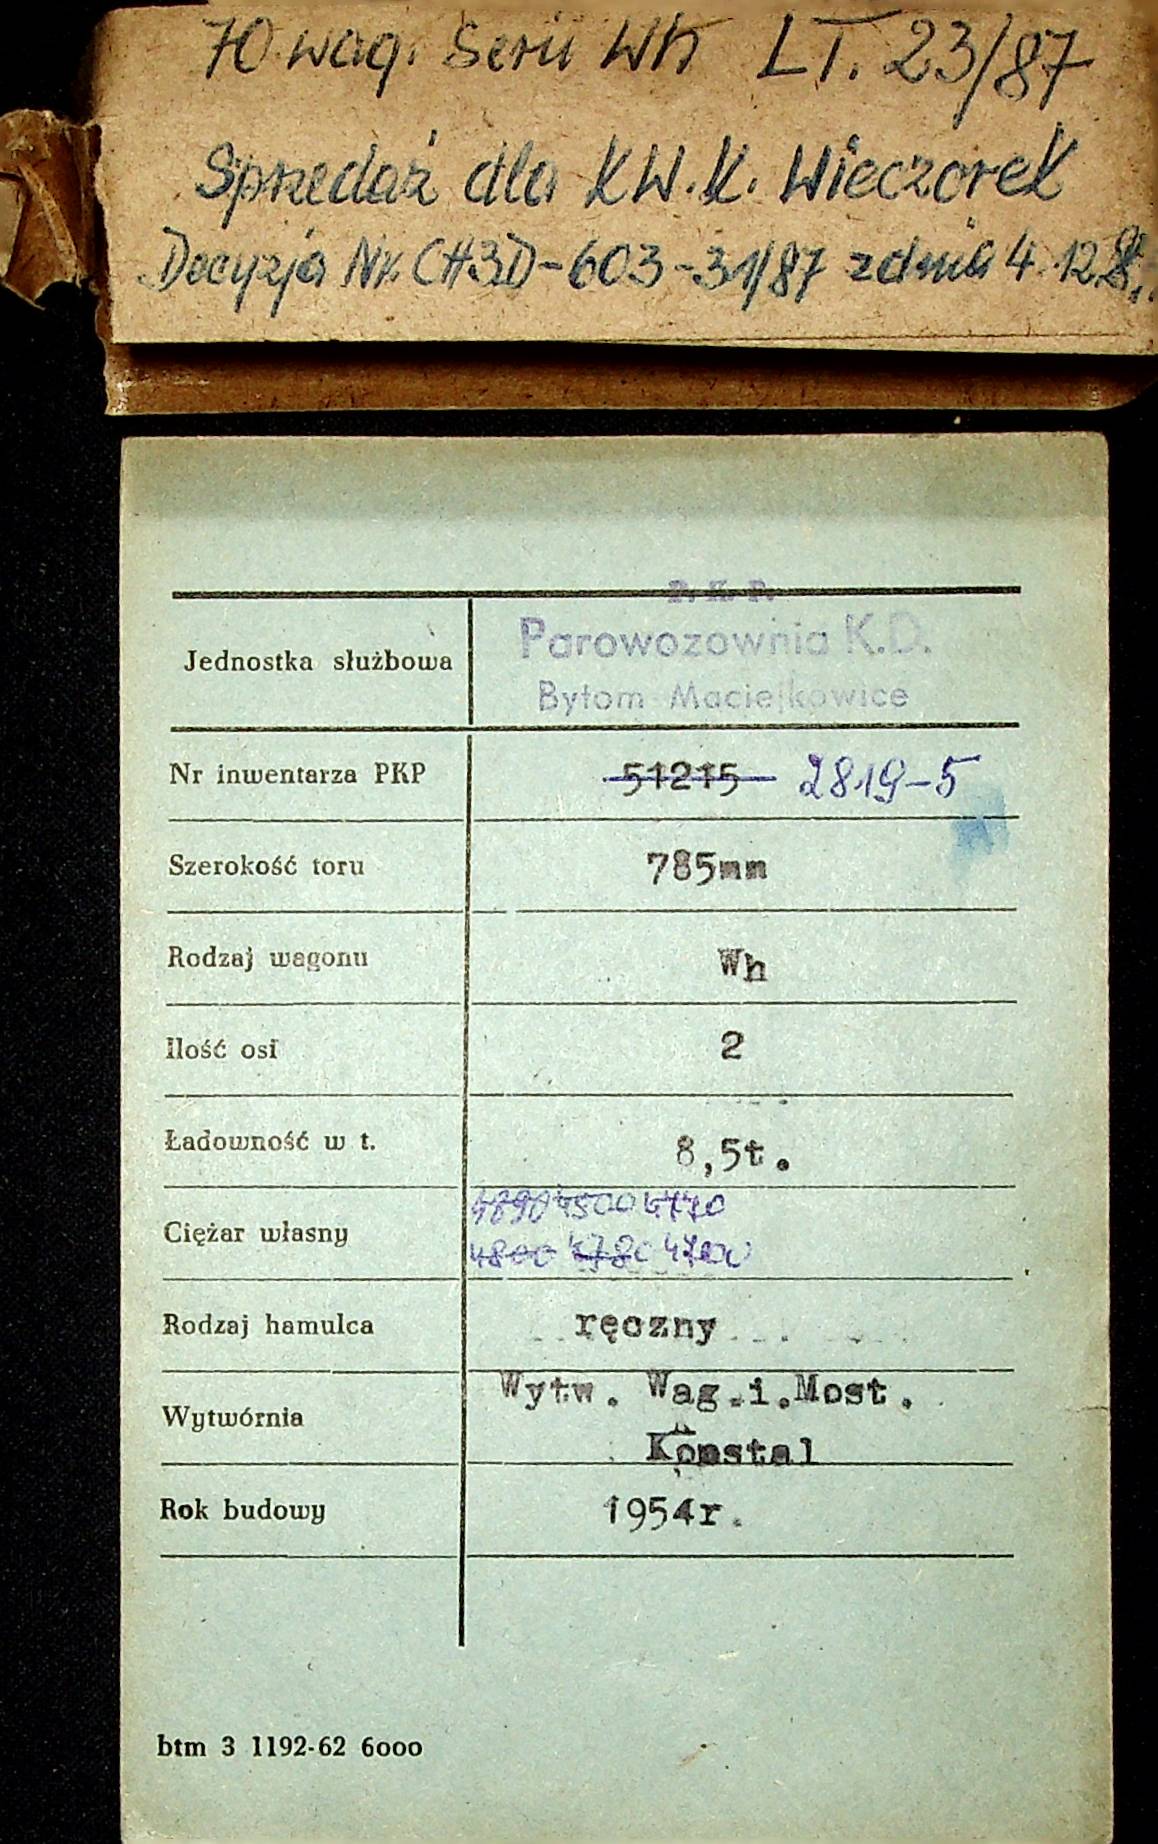 70 wag. Serii Wh LT. 23/87
Sprzedaż dla KW.K. Wieczorek
Decyzja Nr. CH3D-603-31/87 z dnia 4.12.
P. K. P.
Jednostka służbowa Parowozownia K.D.
Bytom Maciejkowice
Nr inwentarza PKP 51215 2819-5
Szerokość toru 785mm
Rodzaj wagonu Wh
Ilość osi 2
Ładowność w t. 8,5t.
4890 4500
Ciężar własny
4800 4780 4700
Rodzaj hamulca ręczny
Wytw. Wag.i.Most.
Wytwórnia
Konstal
Rok budowy 1954r.
btm 3 1192-62 6000